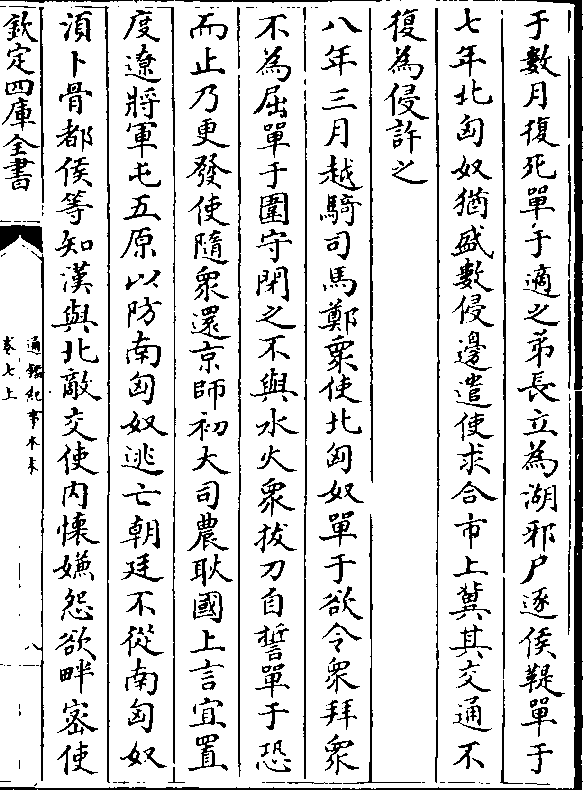 于數月復死單于適之弟長立為湖邪尸逐侯鞮單于
七年北匈奴猶盛數侵邊遣使求合市上冀其交通不
復為侵許之
八年三月越騎司馬鄭衆使北匈奴單于欲令衆拜衆
不為屈單于圍守閉之不與水火衆拔刀自誓單于恐
而止乃更發使隨衆還京師初大司農耿國上言宜置
度遼將軍屯五原以防南匈奴逃亡朝廷不從南匈奴
須卜骨都侯等知漢與北敵交使内懷嫌怨欲畔密使
欽定四庫全書
通鑑紀事本末
卷七上
八